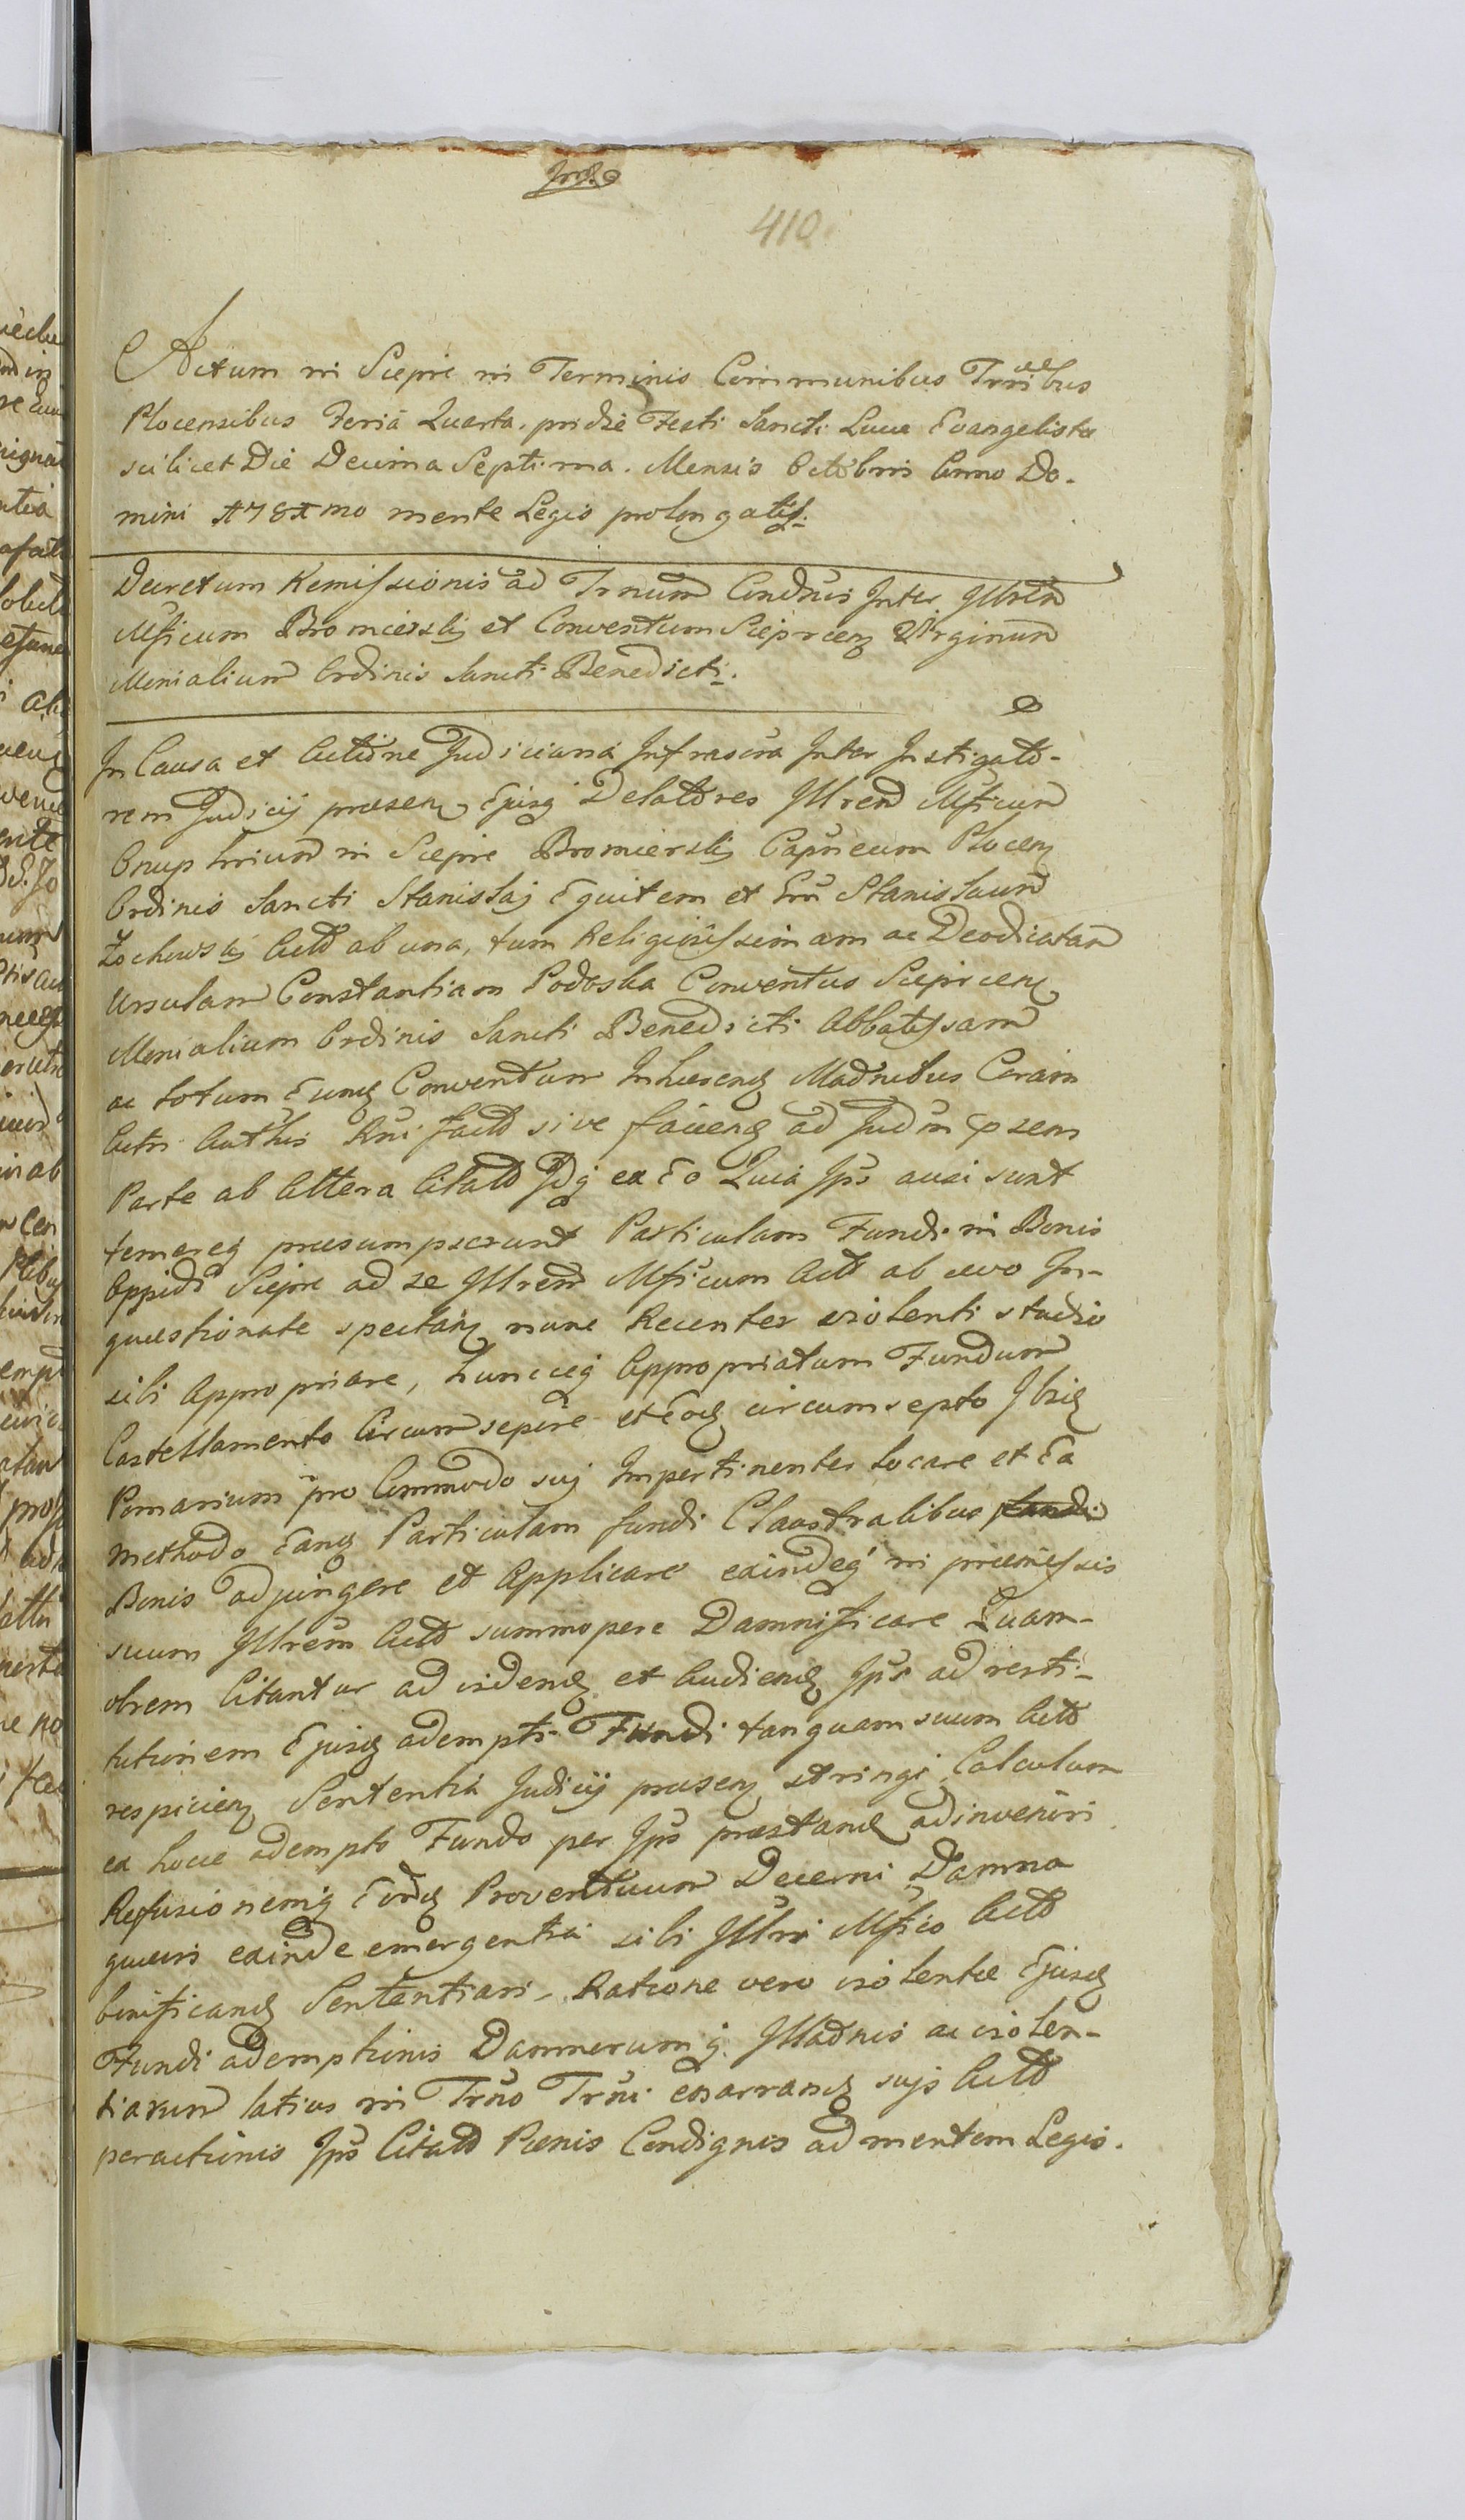 410.
Actum in Sieprc in Terminis Communibus Trribus
Plocensibus Feria Quarta, pridie Festi Sancti Lucæ Evangelistæ
scilicet Die Decima Septima. Mensis Octobris Anno Do-
mini mente Legis prolongatis.
Decretum Remissionis ad Trnum Condnis Inter Illrem
Mficum Bromierskj et Conventum Sieprcen Virginum
Monialium Ordinis Sancti Benedicti.
In Causa et Actione Judiciaria Infrascra Inter Instigato-
rem Judicij præsen Ejusq Delatores Illrem Mficum
Onuphrium in Sieprc Bromierskj Capneum Plocen
Ordinis Sancti Stanislaj Equitem et Stanislaum
Zochowskj Acto ab una, tum Religiosissimam ac Deodicatam
Ursulam Constantiam Podoska Conventus Sieprcen
Monialium Ordinis Sancti Benedicti Abbatissam
ac totum Eund Conventum Inhærend Madnibus Coram
Actis Authis Rni facto sive faciend ad Judm psens
Parte ab Altera Citato Idq ex Eo Quia Ips ausi sunt
temereq præsumpserunt Particulam Fundi in Bonis
Oppidi Sieprc ad se Illrem Mficum Acto ab ævo In-
questionate spectan nunc Recenter violenti studio
sibi Appropriare, huncceq Appropriatum Fundum
Castellamento Circumsepire et Eod circumsepto Ibiq
Pomarium pro Commodo suj Impertinenter Locare et Ea
methodo Eand Particulam fundi Claustralibus fundi
Bonis adjungere et Applicare exindeq in præmissis
suum Illrem Acto summopere Damnificare Quam-
obrem Citantur ad vidend et Audiend Ips ad resti-
tutionem Ejusd adempti Fundi tanquam suum Acto
respicien Sententia Judicij præsen stringi, Calculum
ex hocce adempto Fundo per Ips præstand adinveniri
Refusionemq Eord Proventuum Decerni Damna
quævis exinde emergentia sibi Illri Mfico Acto
bonificand Sententiari, Ratione vero violentæ Ejusd
Fundi ademptionis Damnorumq Illadnis ac violen-
tiarum latius in Trno Trni enarrand sujs Acto
peractionis Ips Citato Pœnis Condignis ad mentem Legis.